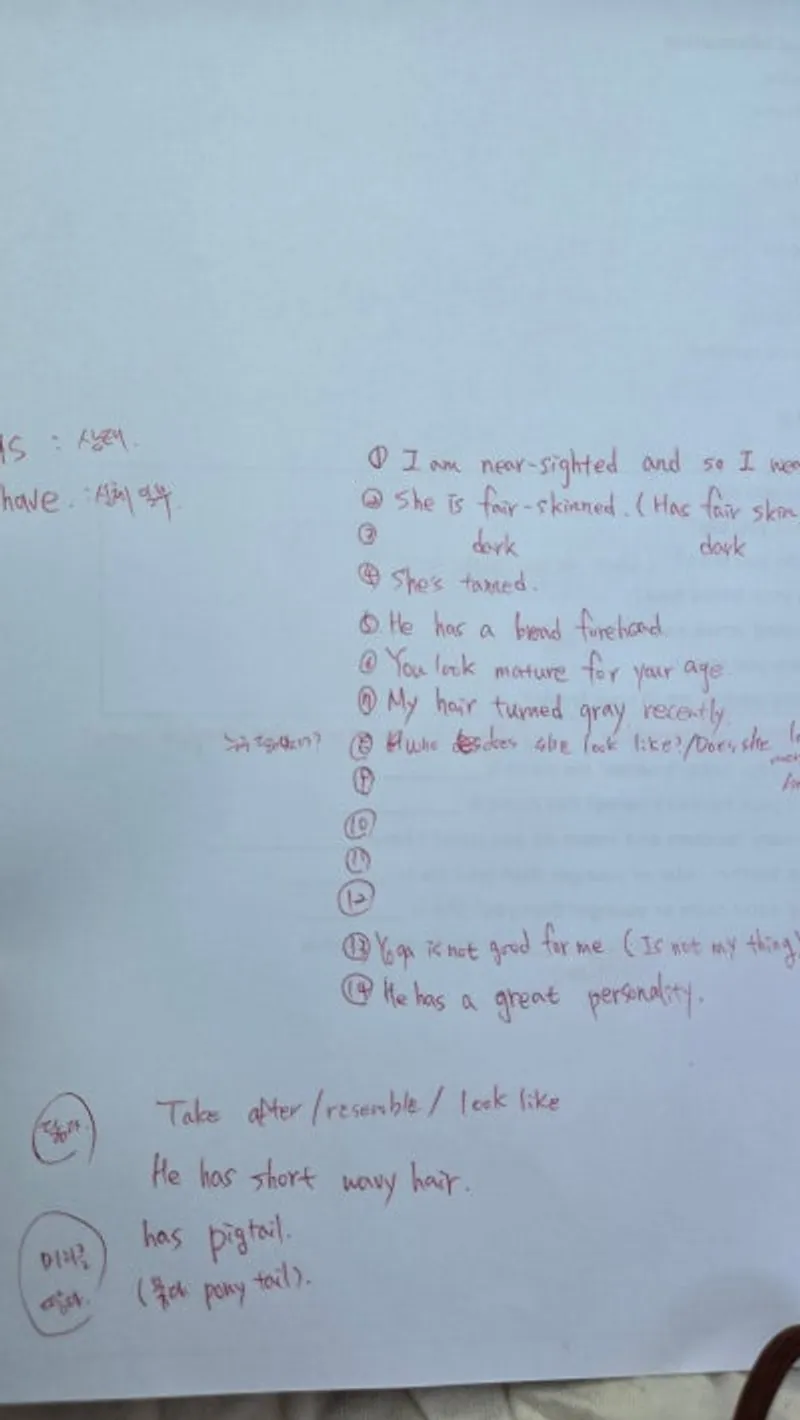 is : 상태.
have. : 신체 일부.
① I am near-sighted and so I wea
② She is fair-skinned. (Has fair skin
③ dark dark
④ She's tanned.
⑤ He has a broad forehead.
⑥ You look mature for your age.
⑦ My hair turned gray recently.
⑧ who does she look like?/Does she
⑨
⑩
⑪
⑫
⑬ Yoga is not good for me (Is not my thing)
⑭ He has a great personality.
닮다. Take after/resemble/look like
He has short wavy hair.
머리를 has pigtail.
묶다. (묶다 pony tail).